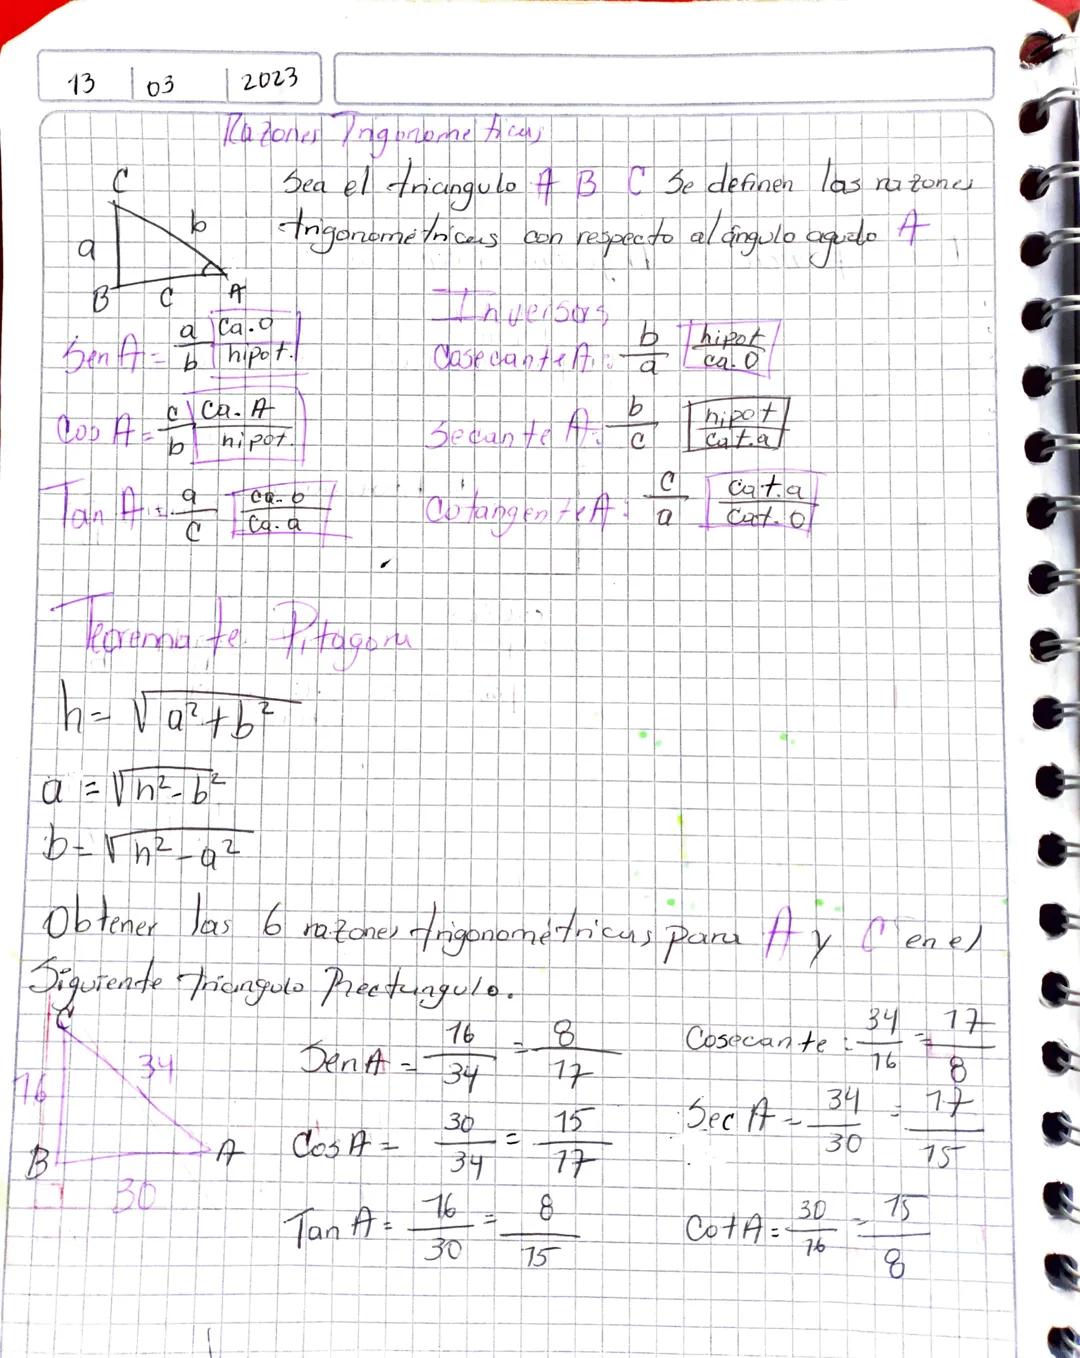 13 03 2023
Razones Trigonometricas
Sea el triangulo A B C Se definen las razones
trigonométricas con respecto al ángulo agudo A
C
a b
B C A
Sen A = a/b ca.o/hipot.
Inversors
Cosecante A: b/a hipot/ca.O
Cos A = c/b ca.A/hipot
Secante A: b/c hipot/cat.a
Tan A = a/c ca.o/ca.a
Cotangente A: c/a cat.a/cat.o
Teorema te Pitagora
h = √a²+b²
a = √h²-b²
b = √h²-a²
Obtener las 6 razones trigonométricas para A y C en el
Siguiente Triangulo Rectangulo.
C
16 34
B A
30
Sen A = 16/34 = 8/17
Cosecante: 34/16 = 17/8
Cos A = 30/34 = 15/17
Sec A = 34/30 = 17/15
Tan A = 16/30 = 8/15
Cot A = 30/16 = 15/8